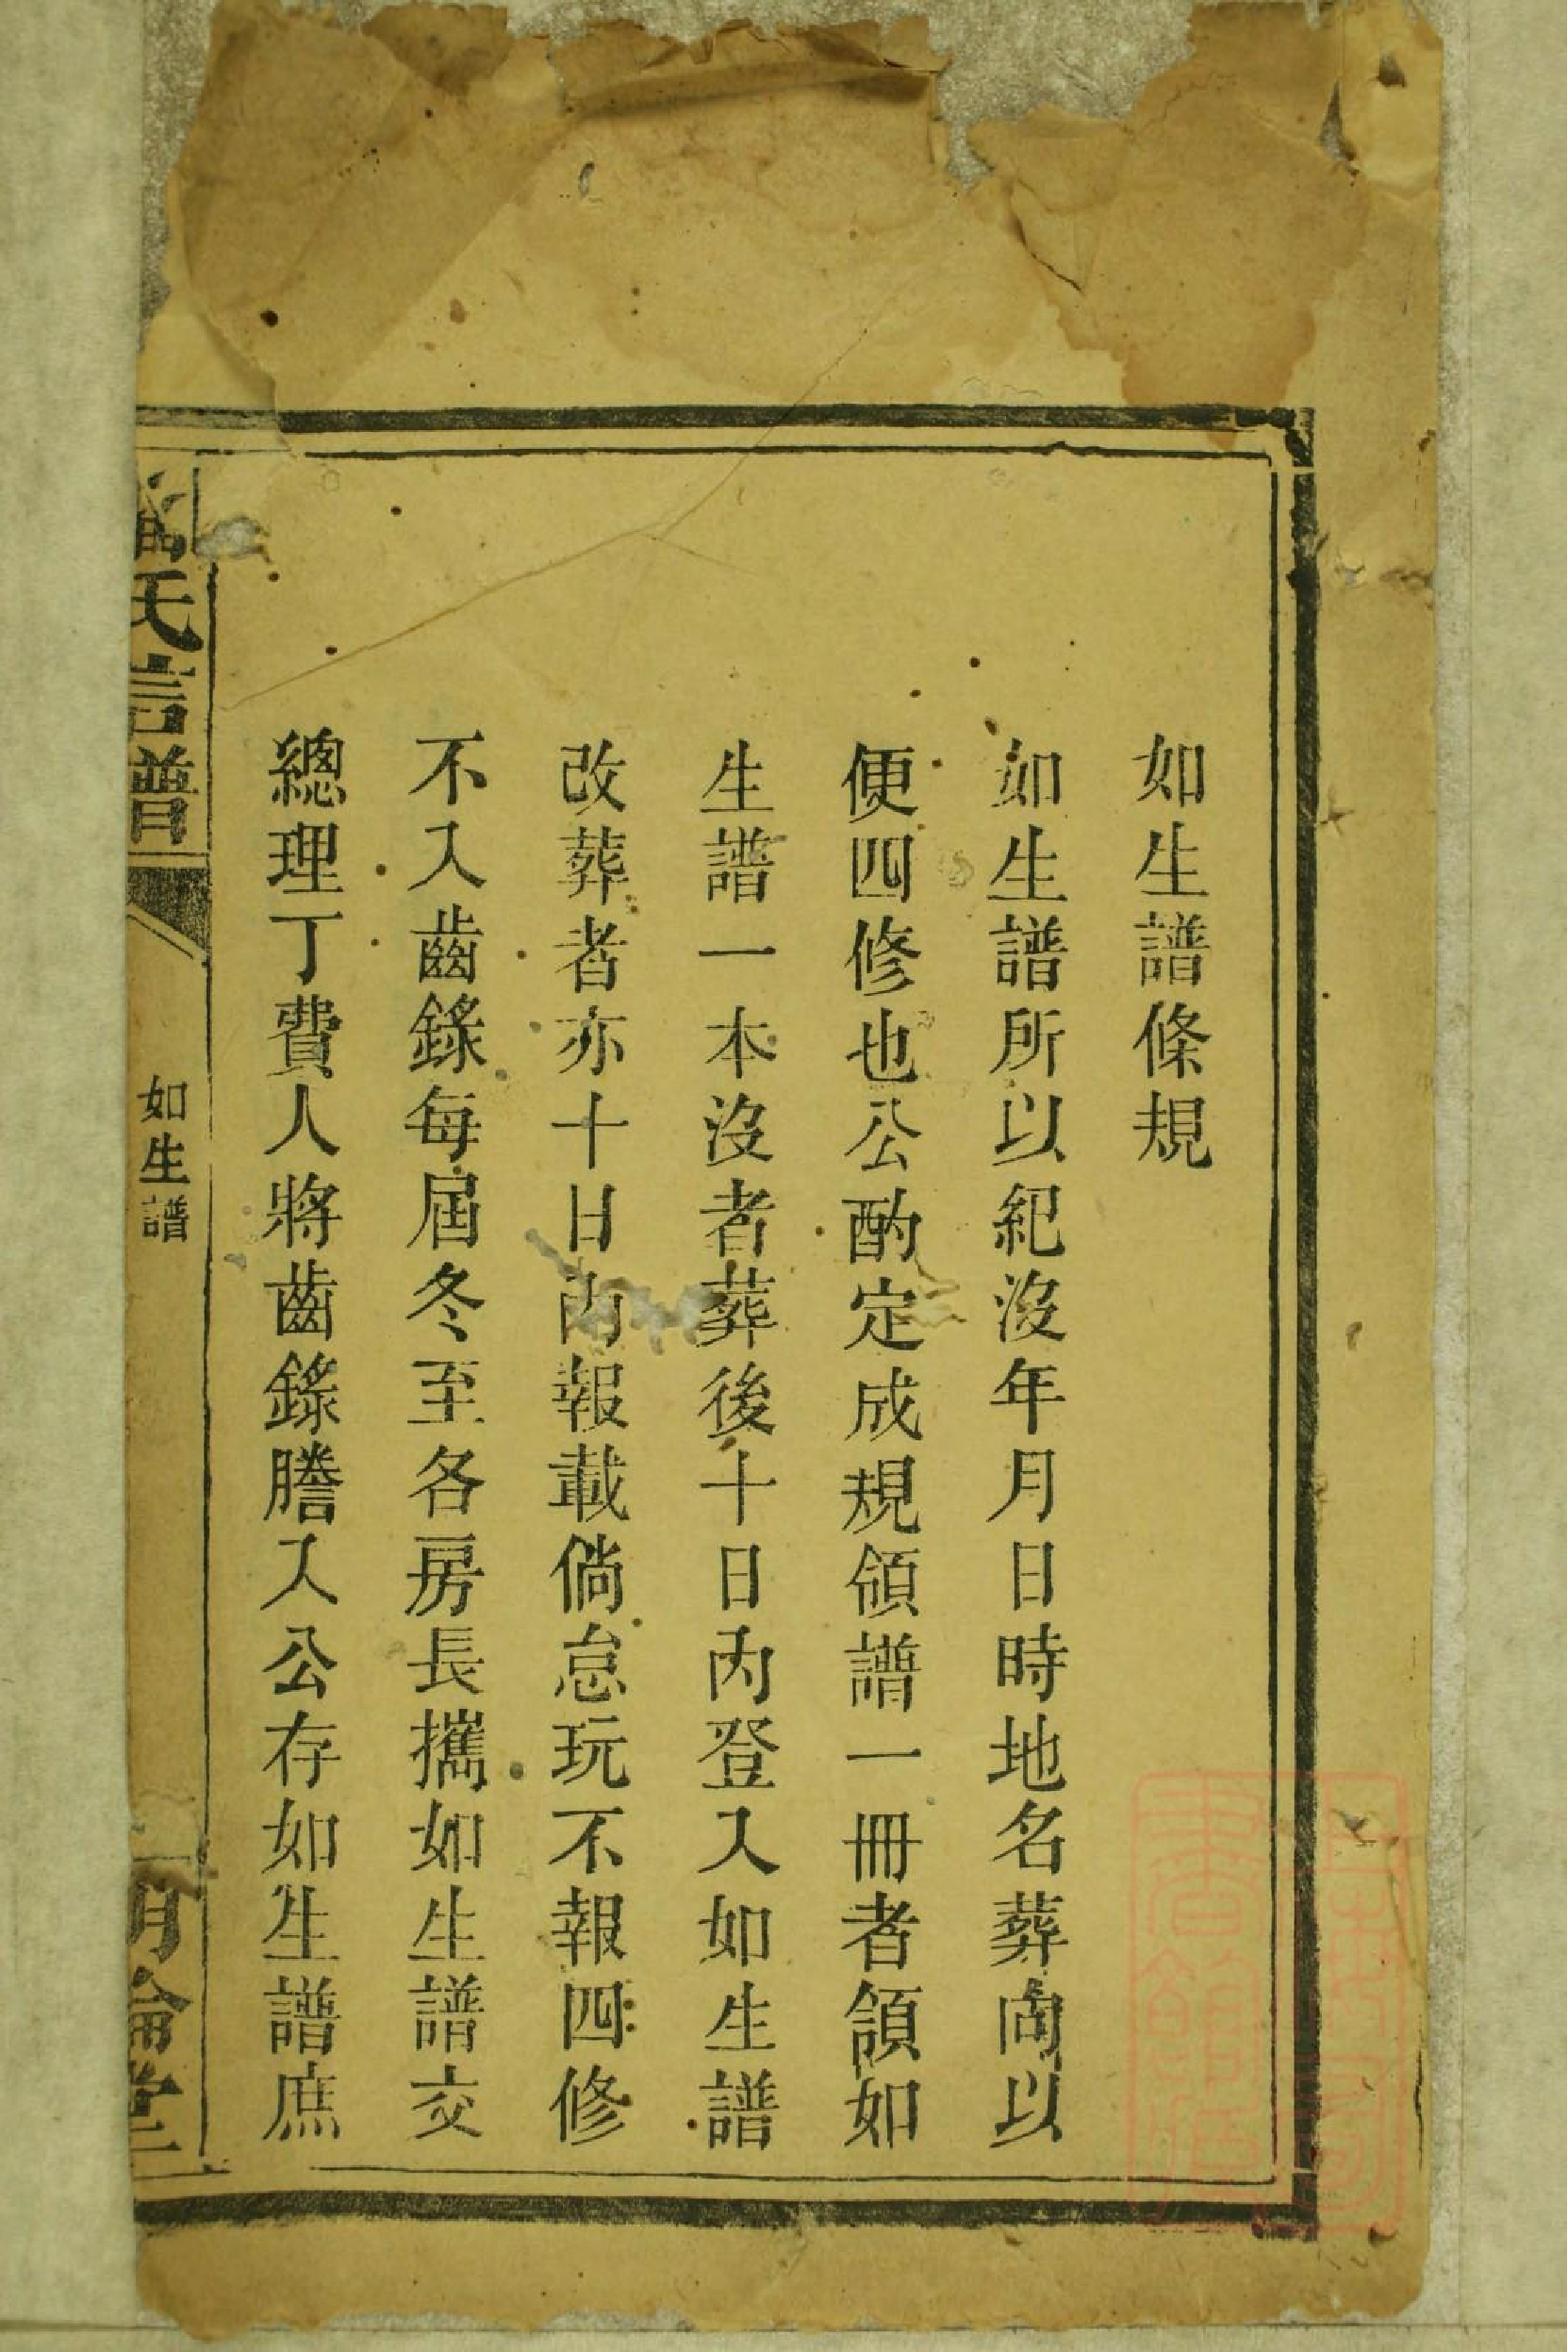 如生譜條規
如生譜所以紀沒年月日時地名葬向以
便四修也公酌定成規領譜一冊者領如
生譜一本沒者葬後十日內登入如生譜
改葬者亦十日內報載倘怠玩不報四修
不入齒錄每屆冬至各房長攜如生譜交
總理丁費人將齒錄謄入公存如生譜庶
氏言譜
如生譜
明倫堂